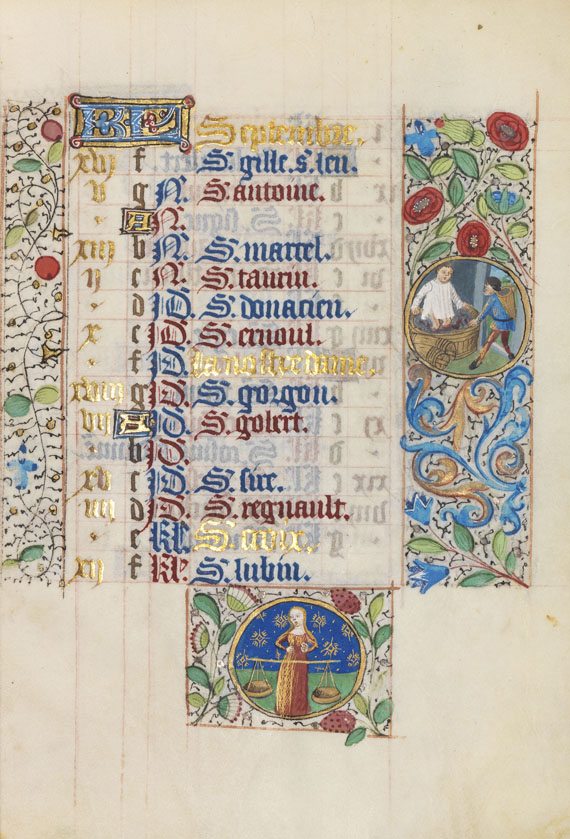 KL Septembre.
xvij f S. gille. s. leu.
v g N. S. antoine.
. A N.
xiij b N. S. marcel.
ij c N. S. taurin.
. d N. S. donacien.
x e D. S. ernoul.
. f D. La nostre dame.
xviij g D. S. gorgon.
vij A D. S. golert.
. b D.
xv c D. S. sire.
iiij d D. S. regnault.
. e Kl. S. croix.
xij f Kl. S. lubin.